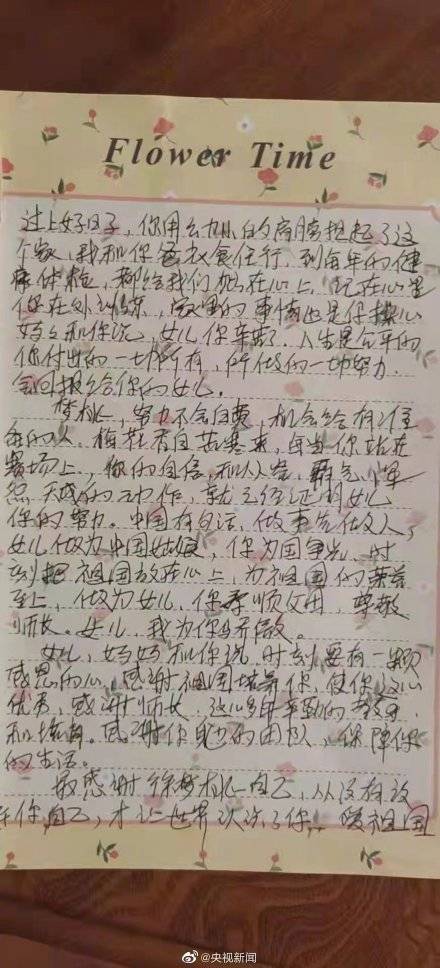 Flower Time
过上好日子，你用幺小的肩膀担起了这
个家，我和你爸衣食住行，到每年的健
康体检，都给我们放在心上，记在心里
你在外训练，家里的事情也是你操心
妈妈和你说，女儿你辛苦了，人生是公平的
你付出的一切所有，所做的一切努力
会回报给你的女儿。
梦桃，努力不会白费，机会给有准
备的人，梅花香自苦寒来，每当你站在
赛场上，你的自信，和从容，霸气，浑
然天成的动作，就足够证明女儿
你的努力。中国有句话，做事先做人，
女儿做为中国姑娘，你为国争光，时
刻把祖国放在心上，为祖国的荣益
至上，做为女儿，你孝顺父母，尊敬
师长。女儿，我为你骄傲。
女儿，妈妈和你说，时刻要有一颗
感恩的心，感谢祖国培养你，使你这么
优秀，感谢师长，这么多年辛勤的教导
和培育。感谢你身边的团队，保障你
的生活。
最感谢徐梦桃自己，从没有放
弃你自己，才让世界次次了你，愿祖国
@央视新闻